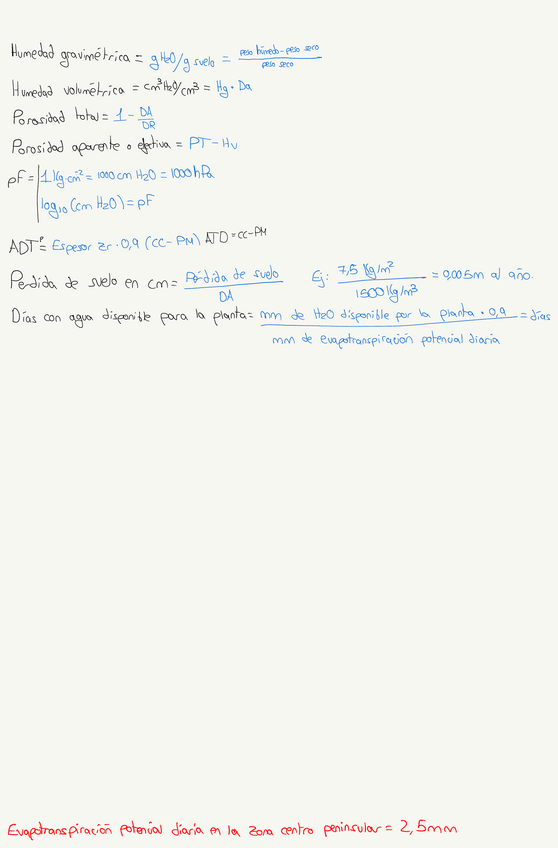 Humedad gravimétrica = gH2O/g suelo = peso húmedo - peso seco / peso seco
Humedad volumétrica = cm³H2O/cm³ = Hg · Da
Porosidad total = 1 - DA/DR
Porosidad aparente o efectiva = PT - Hv
pF = 1 Kg·cm² = 1000 cm H2O = 1000 hPa
log10 (cm H2O) = pF
ADTP = Espesor zr · 0,9 (CC - PM) ATD = CC - PM
Perdida de suelo en cm = Pérdida de suelo / DA Ej: 7,5 Kg/m² / 1500 Kg/m³ = 0,005m al año.
Días con agua disponible para la planta = mm de H2O disponible por la planta · 0,9 / mm de evapotranspiración potencial diaria = días
Evapotranspiración potencial diaria en la zona centro peninsular = 2,5mm